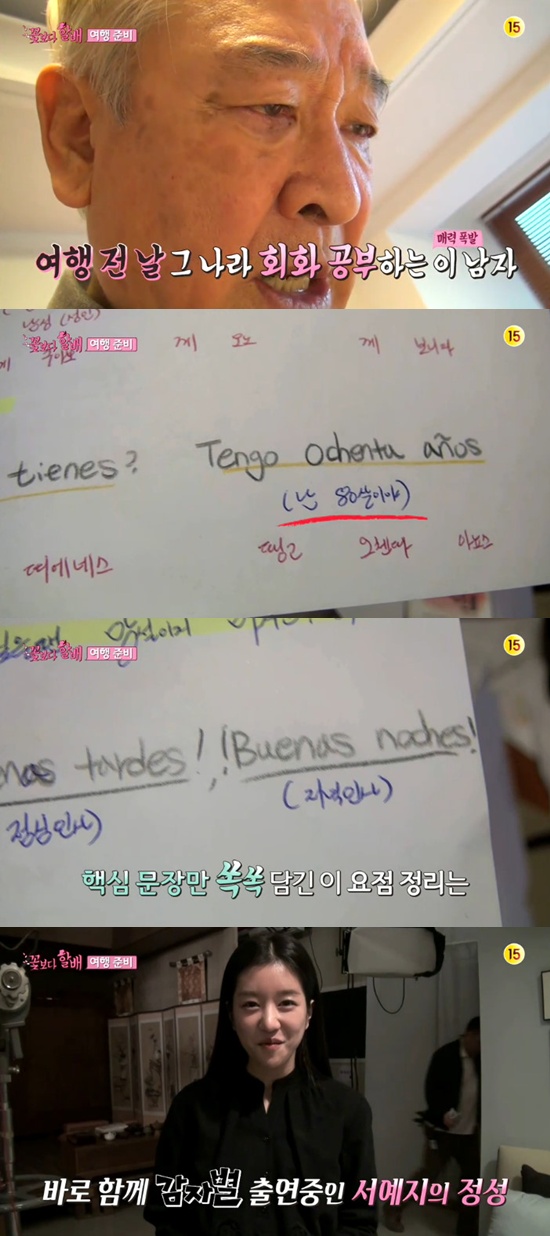 꽃보다 할배 여행 준비
15
매력 폭발
여행 전 날 그 나라 회화 공부하는 이 남자
남성 (성인)
꽃보다 할배 여행 준비
15
께 오노 께 보니따
tienes? Tengo ochenta años
(난 80살이야)
띠에네스 땡고 오첸따 아뇨스
꽃보다 할배 여행 준비
15
nas tardes! ¡Buenas noches!
(점심인사) (저녁인사)
핵심 문장만 쏙쏙 담긴 이 요점 정리는
꽃보다 할배 여행 준비
15
바로 함께 감자별 출연중인 서예지의 정성